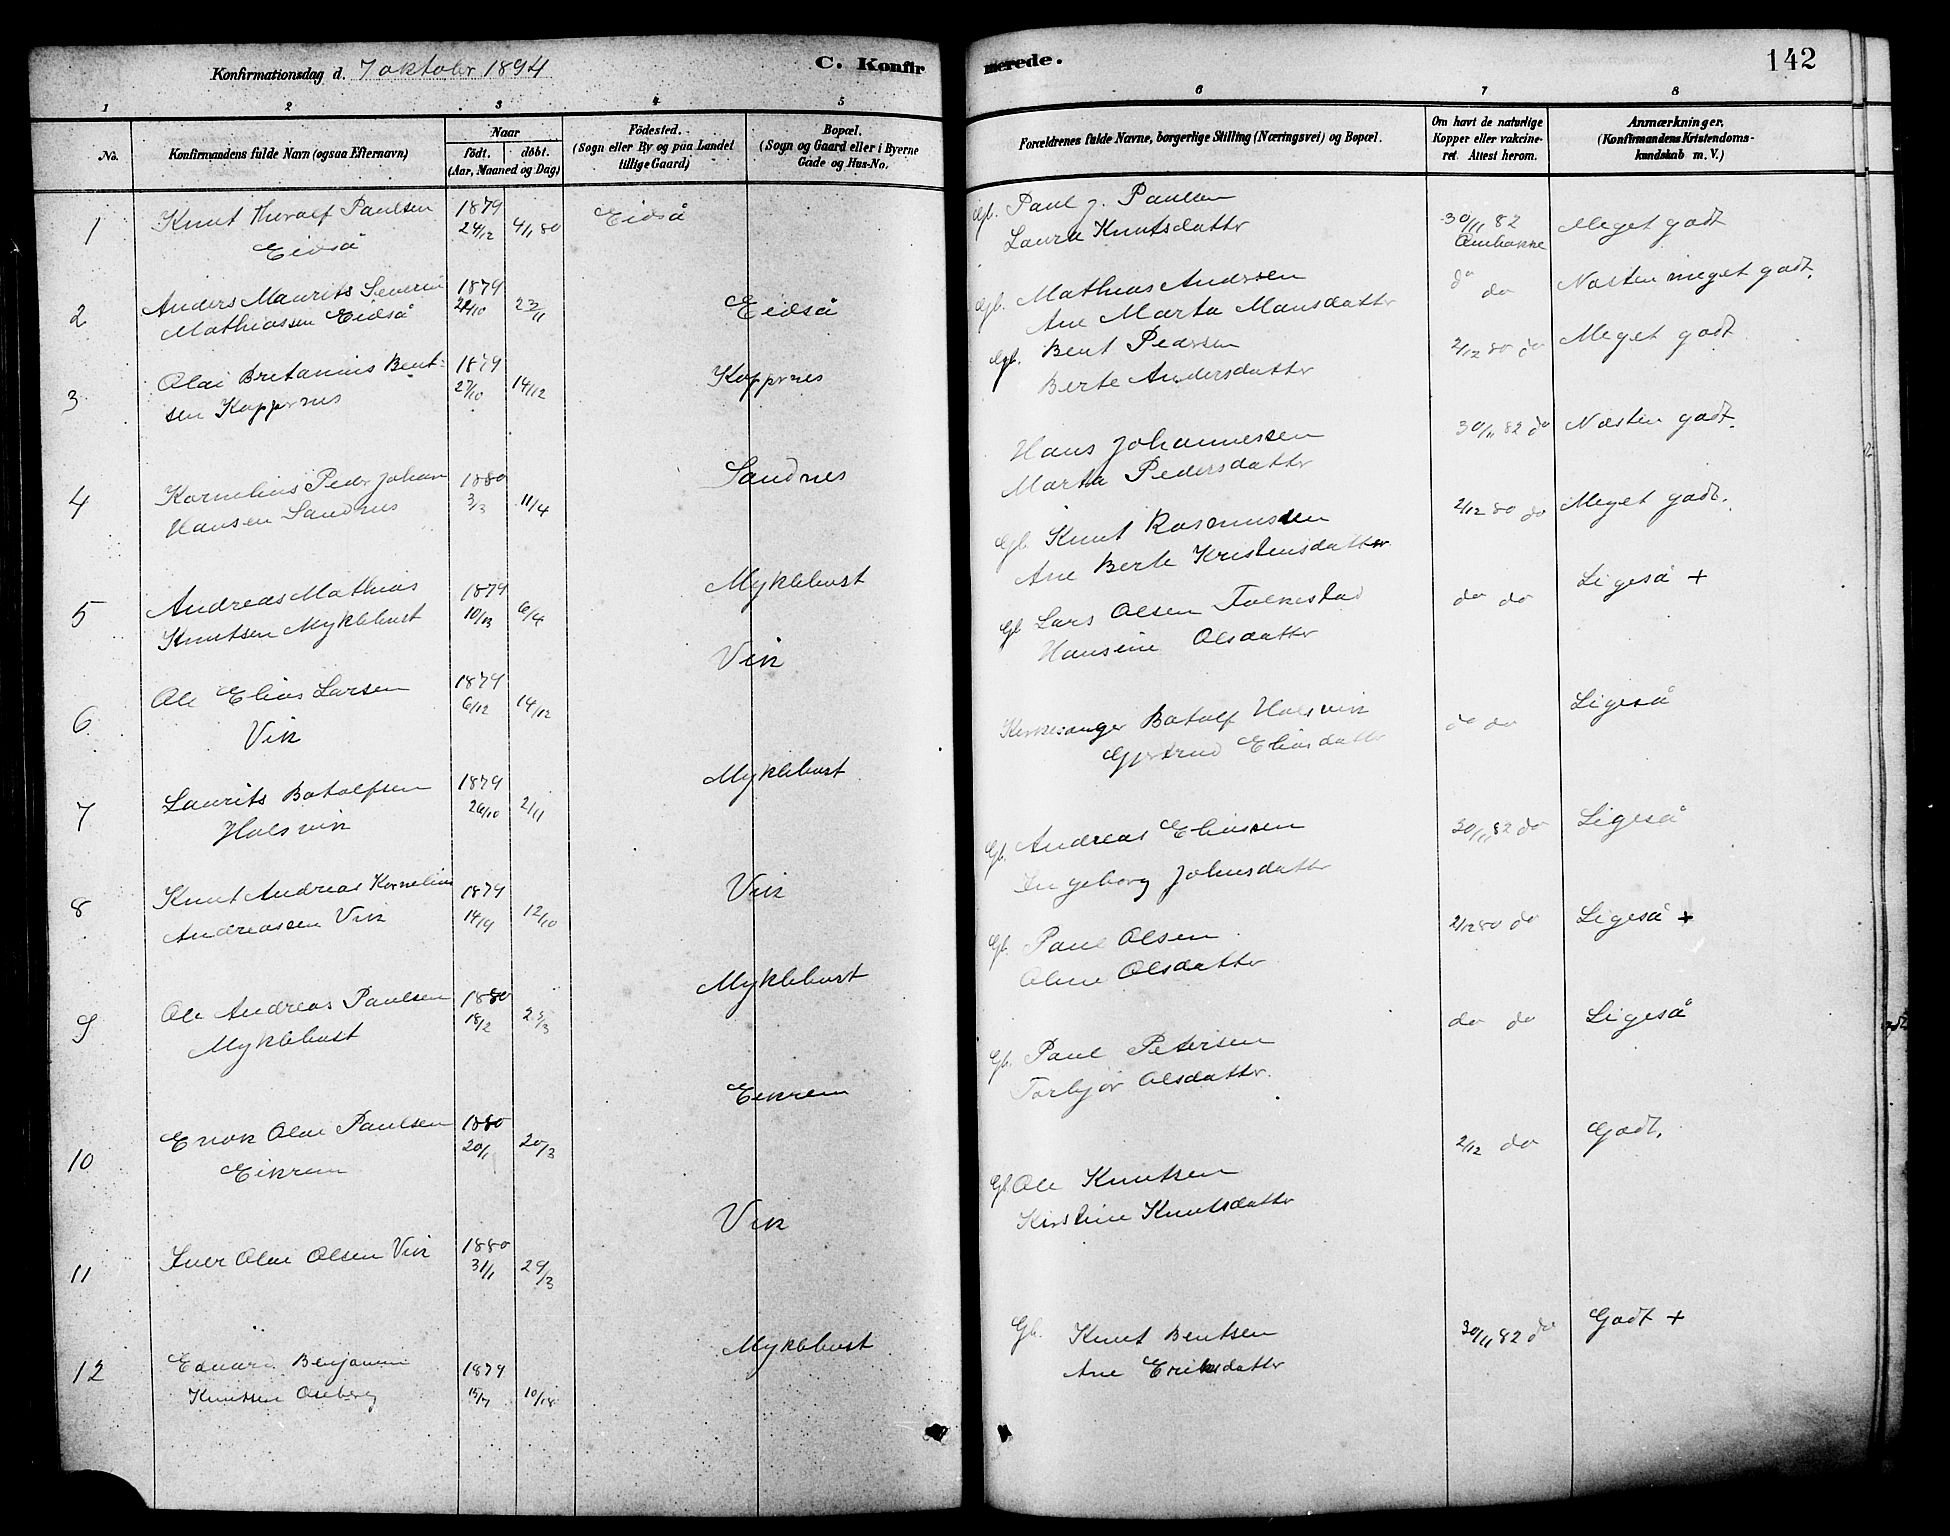 Konfirmationsdag d. 7 oktober 1894
C. Konfirmerede.
142
1 2 3 4 5 6 7 8
No.
Konfirmandens fulde Navn (ogsaa Efternavn)
Naar
födt. döbt.
(Aar, Maaned og Dag)
Födested.
(Sogn eller By og paa Landet
tillige Gaard)
Bopæl.
(Sogn og Gaard eller i Byerne
Gade og Hus-No.
Forældrenes fulde Navne, borgerlige Stilling (Næringsvei) og Bopæl.
Om havt de naturlige
Kopper eller vakcine-
ret. Attest herom.
Anmærkninger.
(Konfirmandens Kristendoms-
kundskab m. V.)
1 Knut Thoralf Paulsen 1879 Eidså Gb. Paul J. Paulsen 30/11 82 Meget godt
Eidså 24/12 4/1 80 Laura Knutsdatter
2 Anders Maurits Severin 1879 Eidså Gb. Mathias Andersen do do Næsten meget godt.
Mathiassen Eidså 24/10 23/11 Ane Marta Monsdatter
3 Olai Bretanius Bent- 1879 Koppnes Gb. Bent Pedersen 2/12 80 do Meget godt
sen Koppnes 27/10 14/12 Berte Andersdatter
4 Kornelius Peder Johan 1880 Sandnes Hans Johannessen 30/11 82 do Næsten godt.
Hansen Sandnes 3/3 11/4 Marta Pedersdatter
5 Andreas Mathias 1879 Myklebust Gb. Knut Rasmussen 2/12 80 do Meget godt.
Knutsen Myklebust 6/4 Ane Berte Kristensdatter
6 Ole Elias Larsen 1879 Vik Gb Lars Olsen Folkestad do do Ligeså +
Vik 6/12 14/12 Hansine Olsdatter
7 Laurits Botolfsen 1879 Myklebust Kirkesanger Botolf Holsvik do do Ligeså
Holsvik 26/10 2/11 Gjertrud Eliasdatter
8 Knut Andreas Kornelius 1879 Vik Gb. Andreas Eliassen 30/11 82 do Ligeså
Andreassen Vik 14/9 12/10 Ingeborg Johnsdatter
9 Ole Andreas Paulsen 1880 Myklebust Gb. Paul Olsen 2/12 80 do Ligeså +
Myklebust 18/2 Oline Olsdatter
10 Enok Olai Paulsen 1880 Eikrem Gb. Paul Petersen do do Ligeså
Eikrem 20/1 20/3 Torbjør Olsdatter.
11 Iver Olai Olsen Vik 1880 Vik Gb Ole Knutsen 2/12 do Godt.
31/1 29/3 Kirstine Knutsdatter
12 Edvard Benjamin 1879 Myklebust Gb. Knut Bentsen 30/11 82 do Godt +
Knutsen Aaberg Ane Eriksdatter